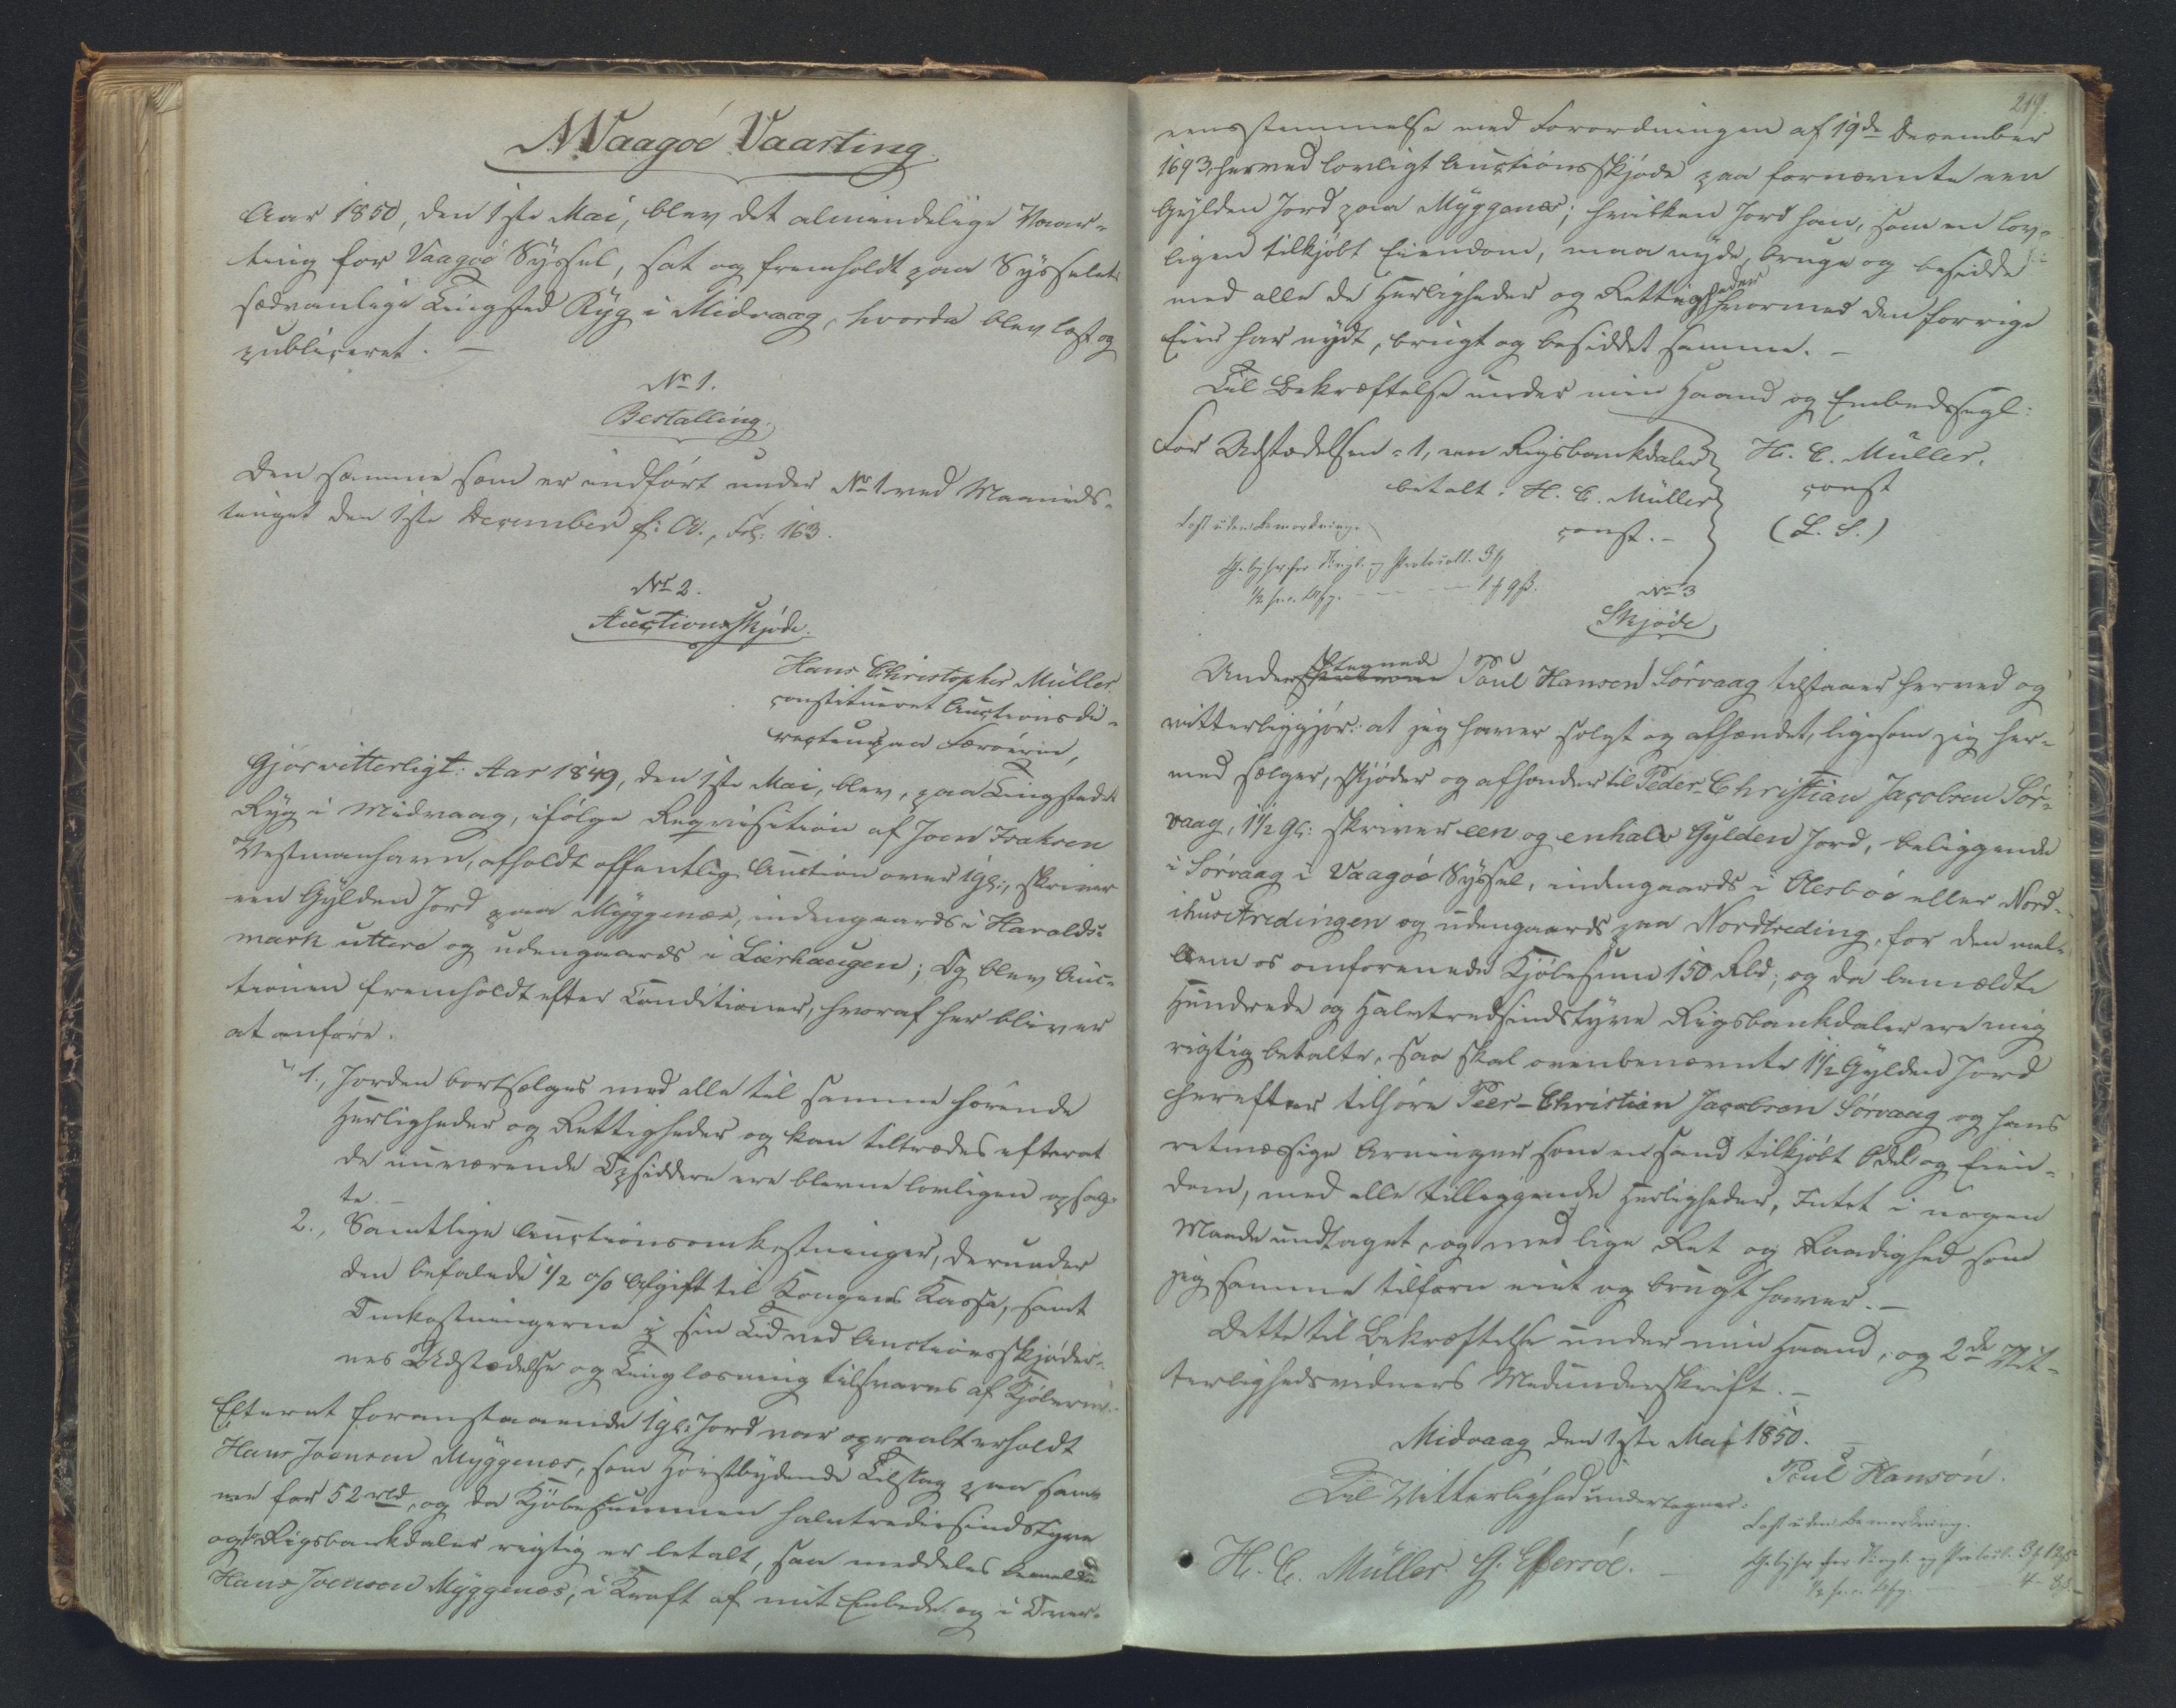 Vaagoe Vaarting
Aar 1850, den 1ste Mai, blev det almindelige Vaar-
ting for Vaagøe Syssel, sat og fremholdt paa Sysselets
sædvanlige Tingsted Ryg i Midvaag, hvorda blev læst og
publiceret. —
No 1.
Bestalling.
Den samme som er indført under No 1 ved Maaneds-
tinget den 1ste December f: A., Fol: 163.
No 2.
Auctionsskjøde.
Hans Christopher Müller
constitueret Auctionsdi-
recteur paa Færøerne,
Gjør vitterligt: Aar 1849, den 1ste Mai, blev, paa Tingstedet
Ryg i Midvaag, ifølge Reqvisition af Joen Isaksen
Vestmanhavn, afholdt offentlig Auction over 1 Gl:, skriver
een Gylden Jord paa Myggenæs, indengaards i Haralds-
mark uttere og udengaards i Lierhaugen; Og blev Auc-
tionen fremholdt efter Conditioner, hvoraf her bliver
at anføre.
"1., Jorden bortsælges med alle til samme hørende
Herligheder og Rettigheder og kan tiltrædes efterat
de nuværende Opsiddere ere blevne lovligen opsag-
te. —
2., Samtlige Auctionsomkostninger, derunder
den befalede 1/2 o/o Afgift til Kongens Kasse, samt
Omkostningerne i sin Tid ved Auctionsskjøder-
nes Udstædelse og Tinglæsning tilsvares af Kjøberne.
Efterat foranstaaende 1 Gl: Jord var opraabt erholdt
Hans Joensen Myggenæs, som Høistbydende Tilslag paa sam-
me for 52 rbd, og da Kjøbesummen halvtredsindstyve
og to Rigsbankdaler rigtig er betalt, saa meddeles bemeldte
Hans Joensen Myggenæs, i Kraft af mit Embede og i Over-
219.
eensstemmelse med Forordningen af 19de December
1693, herved lovligt Auctionsskjøde paa fornævnte een
Gylden Jord paa Myggenæs; hvilken Jord han, som en lov-
ligen tilkjøbt Eiendom, maa nyde, bruge og besidde
med alle de Herligheder og Rettigheder hvormed den forrige
Eier har nydt, brugt og besiddet samme. —
Til Bekræftelse under min Haand og Embedssegl:
For Udstædelsen = 1, een Rigsbankdaler H. C. Müller.
betalt. H. C. Müller const
const. — (L. S.)
Læst uden Bemærkning.
Gebyhr for Tingl. og Protocoll. 3
1/2 pro c. Afg. — — — 1 9 ß.
No 3
Skjøde
Undertegnede Poul Hansen Sørvaag tilstaaer herved og
vitterliggjør: at jeg haver solgt og afhændet, ligesom jeg her-
med sælger, skjøder og afhænder til Peder-Christian Jacobsen Sør-
vaag, 1 1/2 Gl: skriver een og en halv Gylden Jord, beliggende
i Sørvaag i Vaagøe Syssel, indengaards i Olesbøe eller Nord-
ihustredingen og udengaards paa Nordtreding, for den mel-
lem os omforenede Kjøbesum 150 Rbd; og da bemældte
Hundrede og Halvtredsindstyve Rigsbankdaler ere mig
rigtig betalte, saa skal ovenbenævnte 1 1/2 Gylden Jord
herefter tilhøre Peer-Christian Jacobsen Sørvaag og hans
retmæssige Arvinger som en sand tilkjøbt Odel og Eien-
dom, med alle tilliggende Herligheder, Intet i nogen
Maade undtaget, og med lige Ret og Raadighed som
jeg samme tilforn eiet og brugt haver. —
Dette til Bekræftelse under min Haand, og 2de Vit-
terlighedsvidners Medunderskrift. —
Midvaag den 1ste Mai 1850.
Poul Hansøn.
Til Vitterlighed undertegner:
H. C. Müller. G. Effersøe. —
Læst uden Bemærkning.
Gebyhr for Tingl. og Protocol. 3 12 ß
1/2 pro c. Afg. — — 4 - 8 ß. —